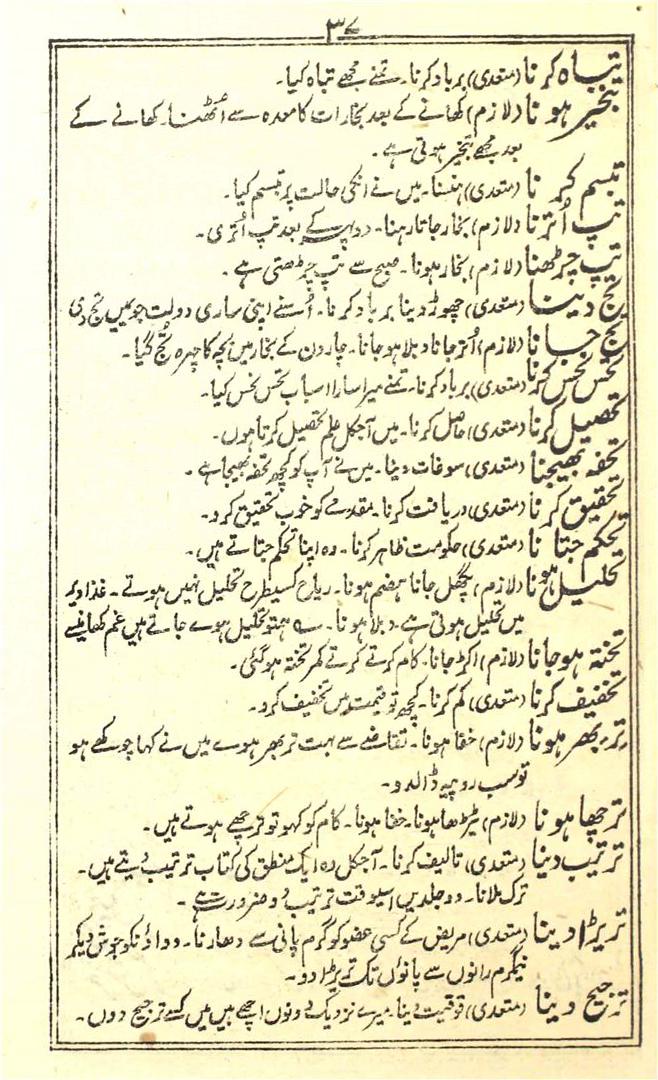 ۳۷
تباہ کرنا (متعدی) برباد کرنا۔ تمنے مجھے تباہ کیا۔
تبخیر ہونا (لازم) کھانے کے بعد بخارات کا معدہ سے اُٹھنا۔ کھانے کے
بعد مجھے تبخیر ہوتی ہے۔
تبسم کرنا (متعدی) ہنسنا۔ میں نے انکی حالت پر تبسم کیا۔
تپ اُترنا (لازم) بخار جاتا رہنا۔ دوپہر کے بعد تپ اُتری۔
تپ چڑھنا (لازم) بخار ہونا۔ صبح سے تپ چڑھتی ہے۔
تج دینا (متعدی) چھوڑ دینا برباد کرنا۔ اُسنے اپنی ساری دولت جوئیں تج دی
تج جانا (لازم) اُتر جانا دبلا ہو جانا۔ چار دن کے بخار میں بچہ کا چہرہ تج گیا۔
تخس نخس کرنا (متعدی) برباد کرنا۔ تمنے میرا سارا اسباب تخس نخس کیا۔
تحصیل کرنا (متعدی) حاصل کرنا۔ میں آجکل علم تحصیل کرتا ہوں۔
تحفہ بھیجنا (متعدی) سوغات دینا۔ میں نے آپ کو کچھ تحفہ بھیجا ہے۔
تحقیق کرنا (متعدی) دریافت کرنا۔ مقدمے کو خوب تحقیق کرو۔
تحکم جتانا (متعدی) حکومت ظاہر کرنا۔ وہ اپنا تحکم جتاتے ہیں۔
تحلیل ہونا (لازم) پگھل جانا ہضم ہونا۔ ریاح کسیطرح تحلیل نہیں ہوتے۔ غذا دیر
میں تحلیل ہوتی ہے۔ دبلا ہونا۔ ہمتو تحلیل ہوے جاتے ہیں غم کھانیسے
تختہ ہو جانا (لازم) اکڑ جانا۔ کام کرتے کرتے کمر تختہ ہوگئی۔
تخفیف کرنا (متعدی) کم کرنا۔ کچھ تو قیمت میں تخفیف کرو۔
تر بھر ہونا (لازم) خفا ہونا۔ تقاضے سے بہت تر بھر ہوے میں نے کہا چوکھے ہو
تو سب روپیہ ڈالدو۔
ترچھا ہونا (لازم) ٹیڑھا ہونا۔ خفا ہونا۔ کام کو کہو تو ترچھے ہوتے ہیں۔
ترتیب دینا (متعدی) تالیف کرنا۔ آجکل وہ ایک منطق کی کتاب ترتیب دیتے ہیں۔
ترک ملانا۔ دو جلدیں اسیوقت ترتیب دو ضرورت ہے۔
تریڑا دینا (متعدی) مریض کے کسی عضو کو گرم پانی سے دھارنا۔ دواؤنکو جوش دیکر
نیمگرم رانوں سے پانوں تک تریڑا دو۔
ترجیح دینا (متعدی) فوقیت دینا۔ میرے نزدیک دونوں اچھے ہیں میں کسے ترجیح دوں۔